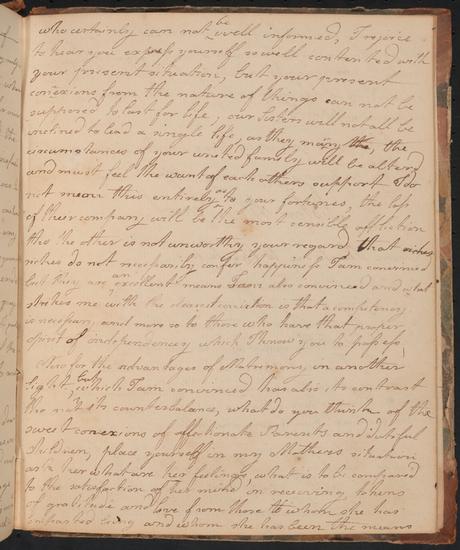 who certainly can not be well informed, I rejoice
to hear you express yourself so well contented with
your present situation, but your present
conexions from the nature of things can not be
supposed to last for life, our sisters will not all be
inclined to lead a single life, as they marry the
circumstances of your united family will be altered
and must feel the want of each others support I do
not mean this entirely as to your fortunes, the loss
of their company will be the most sensible affliction
tho the other is not unworthy your regard that riches
riches do not necessarily confer happiness I am convinced
but they are an excellent means I am also convinced and what
strikes me with the clearest conviction is that a competency
is necessary, and more so to those who have that proper
spirit of independency which I know you to possess,
Now for the advantages of Matrimony, in another
light, but which I am convinced has also its contrast
tho not its counterbalance, what do you think of the
sweet conexions of affectionate Parents and dutiful
Children, place yourself in my Mothers situation
ask her what are her feelings, what is to be compared
to the satisfaction of her mind, in receiving tokens
of gratitude and love from those to whom she has
imparted being and whom she has been the means